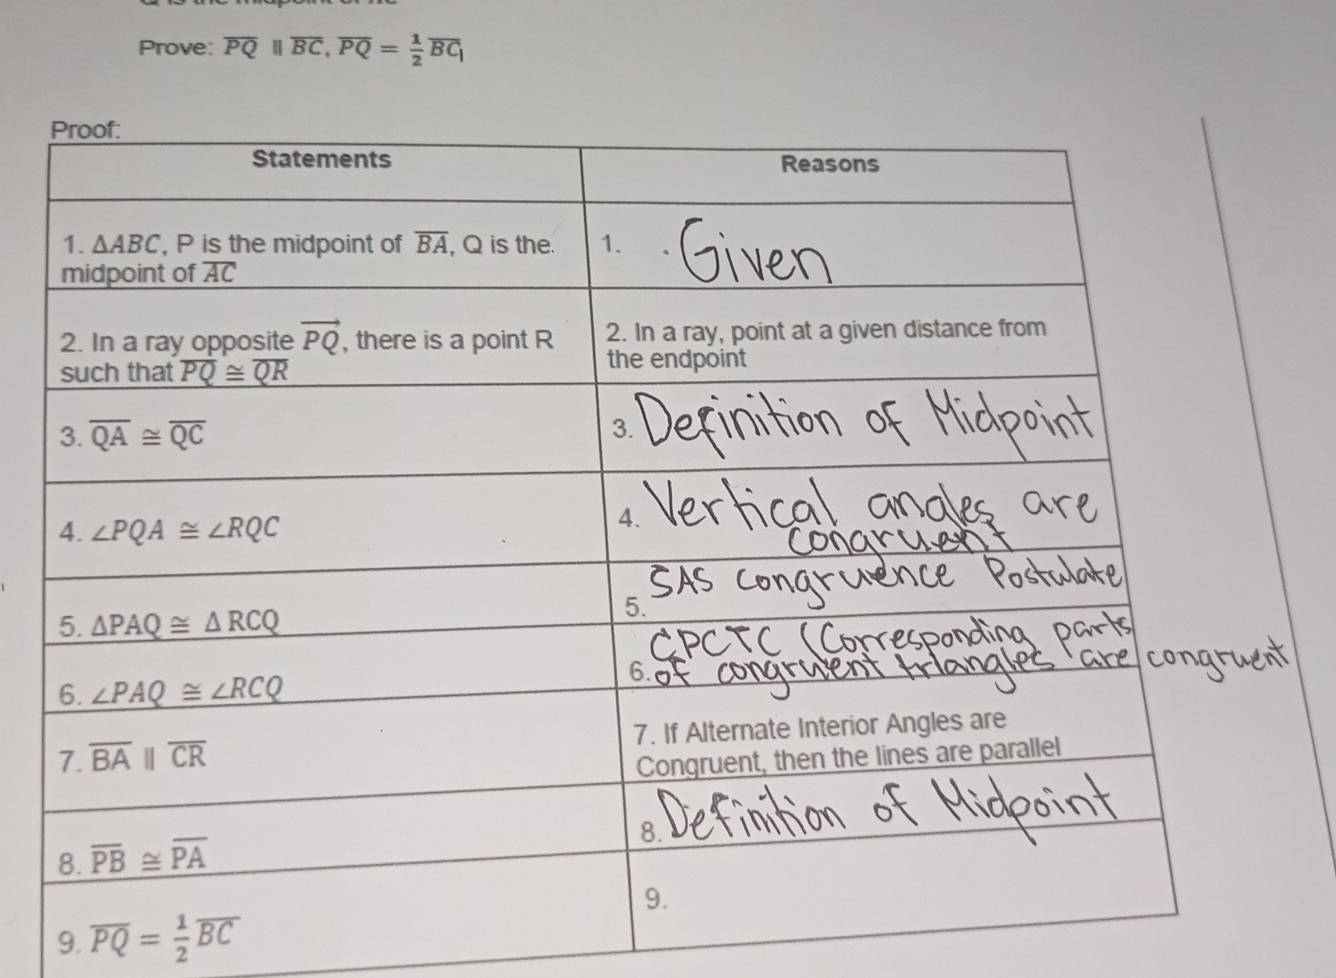 Prove: PQ ∥ BC, PQ = 1/2 BC
Proof:
Statements
Reasons
1. ΔABC, P is the midpoint of BA, Q is the.
midpoint of AC
1. Given
2. In a ray opposite PQ, there is a point R
such that PQ ≅ QR
2. In a ray, point at a given distance from
the endpoint
3. QA ≅ QC
3. Definition of Midpoint
4. ∠PQA ≅ ∠RQC
4. Vertical angles are
congruent
5. ΔPAQ ≅ ΔRCQ
5. SAS congruence Postulate
6. ∠PAQ ≅ ∠RCQ
CPCTC (Corresponding parts
6. of congruent triangles are congruent
7. BA ∥ CR
7. If Alternate Interior Angles are
Congruent, then the lines are parallel
8. PB ≅ PA
8. Definition of Midpoint
9. PQ = 1/2 BC
9.